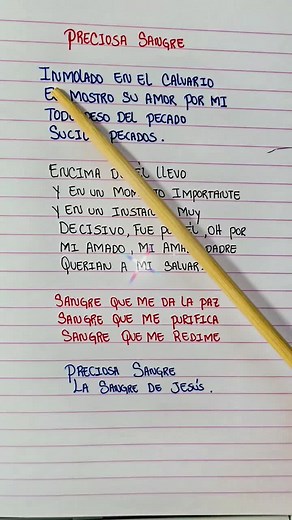 PRECIOSA SANGRE
INMOLADO EN EL CALVARIO
MOSTRO SU AMOR POR MI
TODO PESO DEL PECADO
SUCIOS PECADOS.
ENCIMA DE ÉL LLEVO
Y EN UN MOMENTO IMPORTANTE
Y EN UN INSTANTE MUY
DECISIVO, FUE POR ÉL, OH POR
MI AMADO, MI AMADO PADRE
QUERIAN A MI SALVAR.
SANGRE QUE ME DA LA PAZ
SANGRE QUE ME PURIFICA
SANGRE QUE ME REDIME
PRECIOSA SANGRE
LA SANGRE DE JESÚS.